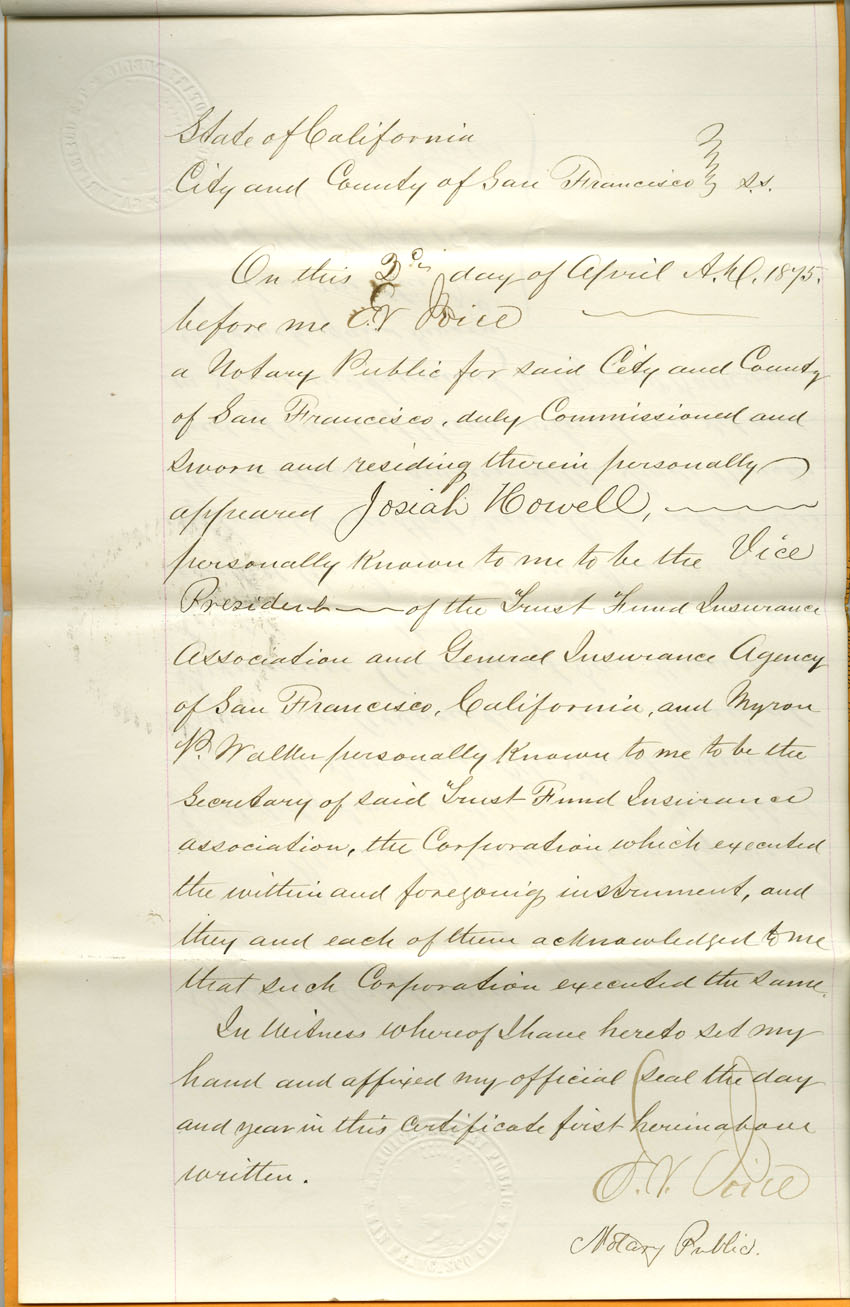 State of California
City and County of San Francisco } s.s.
On this 2d day of April A.D. 1875.
before me E.V. Joice
a Notary Public for said City and County
of San Francisco, duly Commissioned and
sworn and residing therein personally
appeared Josiah Howell,
personally known to me to be the Vice
President of the Trust Fund Insurance
Association and General Insurance Agency
of San Francisco, California, and Myron
P. Walker personally known to me to be the
Secretary of said Trust Fund Insurance
association, the Corporation which executed
the within and foregoing instrument, and
they and each of them acknowledged to me
that such Corporation executed the same.
In Witness whereof I have hereto set my
hand and affixed my official seal the day
and year in this certificate first hereinabove
written.
E.V. Joice
Notary Public.